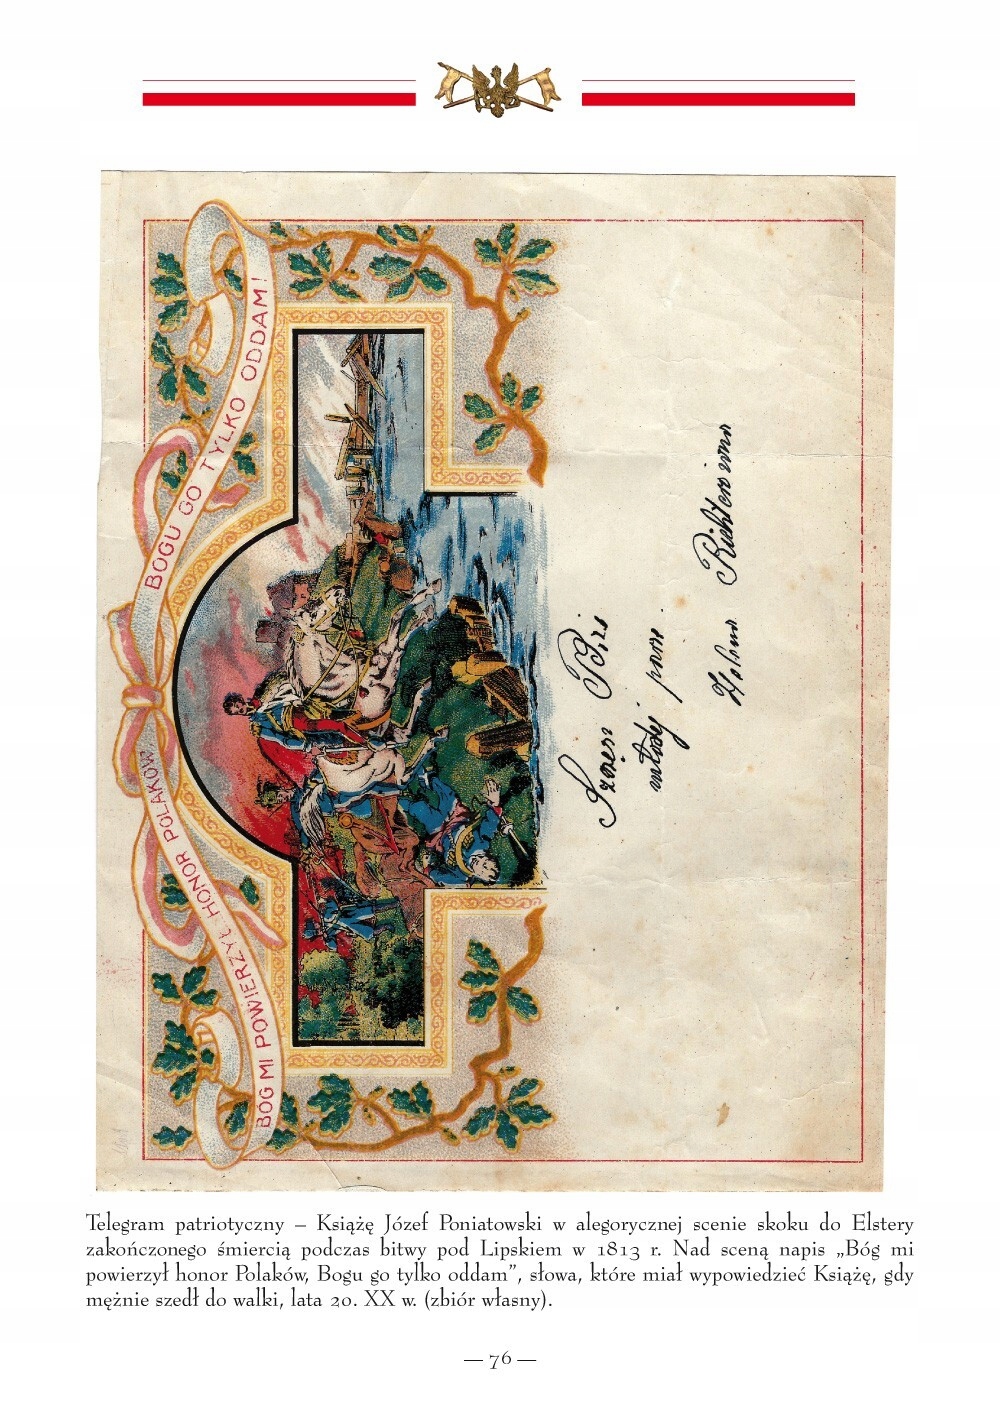 BÓG MI POWIERZYŁ HONOR POLAKÓW,
BOGU GO TYLKO ODDAM!
Szczęść Boże
młodej parze.
Helena Richterówna
Telegram patriotyczny – Książę Józef Poniatowski w alegorycznej scenie skoku do Elstery
zakończonego śmiercią podczas bitwy pod Lipskiem w 1813 r. Nad sceną napis „Bóg mi
powierzył honor Polaków, Bogu go tylko oddam”, słowa, które miał wypowiedzieć Książę, gdy
mężnie szedł do walki, lata 20. XX w. (zbiór własny).
— 76 —